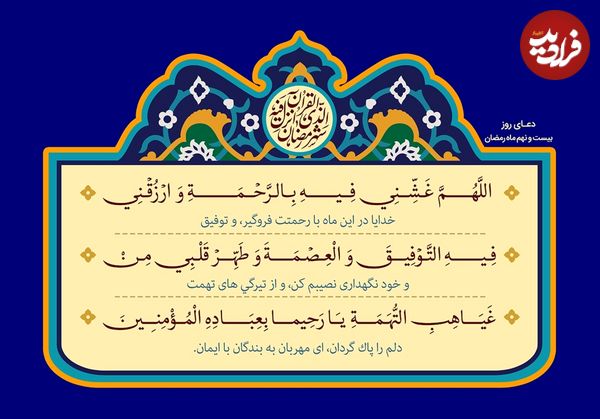 اخبار
فرادید
دعـای روز
بیست و نهم ماه رمضان
شهر رمضان الذی انزل فیه القرآن
اللَّهُمَّ غَشِّنِي فِيهِ بِالرَّحْمَةِ وَ ارْزُقْنِي
خدایا در این ماه با رحمتت فروگیر، و توفیق
فِيهِ التَّوْفِيقَ وَ الْعِصْمَةَ وَ طَهِّرْ قَلْبِي مِنْ
و خود نگهداری نصیبم کن، و از تیرگي های تهمت
غَيَاهِبِ التُّهَمَةِ يَا رَحِيما بِعِبَادِهِ الْمُؤْمِنِينَ
دلم را پاك گردان، ای مهربان به بندگان با ایمان.